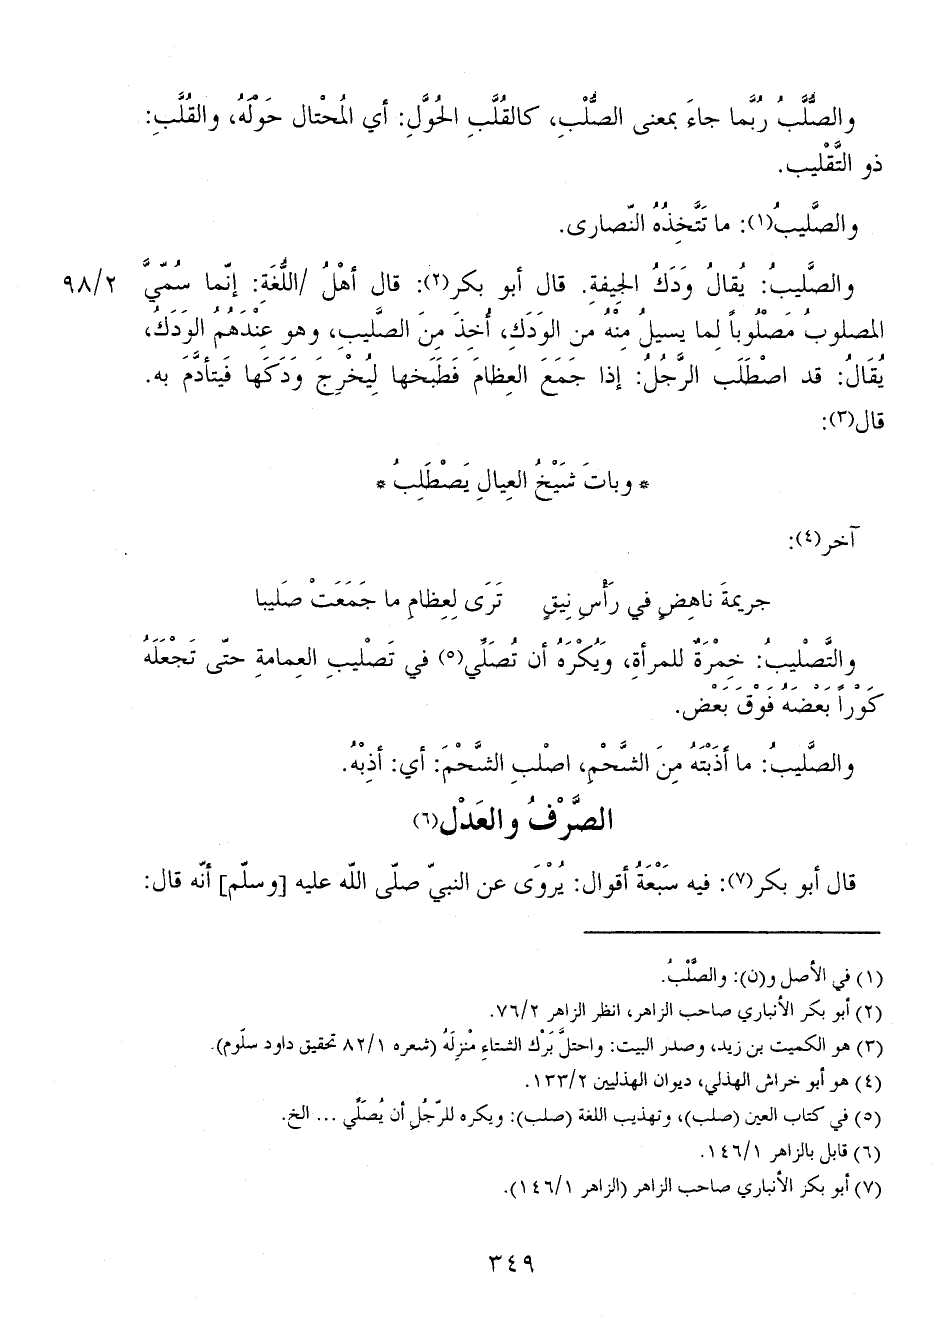 والصُّلَّبُ رُبَّما جاءَ بمعنى الصُّلْبِ، كالقُلَّبِ الحُوَّلِ: أي المُحْتال حَوْلَهُ، والقُلَّبِ:
ذو التَّقْليب.
والصَّليبُ(١): ما تَتَّخِذُهُ النّصارى.
والصَّليبُ: يُقالُ وَدَكُ الجيفةِ. قال أبو بكر(٢): قال أهْلُ /اللُّغَةِ: إنّما سُمِّيَّ ٩٨/٢
المصلوبُ مَصْلُوباً لما يسيلُ مِنْهُ من الوَدَكِ، أُخِذَ مِنَ الصَّليبِ، وهو عِنْدَهُم الوَدَكُ،
يُقَالُ: قد اصْطَلَب الرَّجُلُ: إذا جَمَعَ العِظامَ فَطَبَخها لِيُخْرِجَ وَدَكَها فَيتأدَّمَ به.
قال(٣):
* وباتَ شَيْخُ العِيالِ يَصْطَلِبُ *
آخر(٤):
جريمةَ ناهِضٍ في رَأْسِ نِيقٍ تَرَى لِعِظامِ ما جَمَعَتْ صَليبا
والتَّصْليبُ: خِمْرَةٌ للمرأةِ، وَيُكْرَهُ أن تُصَلِّي(٥) في تَصْليبِ العمامةِ حتّى تَجْعَلَهُ
كَوْراً بَعْضَهُ فَوْقَ بَعْض.
والصَّليبُ: ما أذَبْتَهُ مِنَ الشَّحْمِ، اصْلبِ الشَّحْمَ: أي: أذِبْهُ.
الصَّرْفُ والعَدْل(٦)
قال أبو بكر(٧): فيه سَبْعَةُ أقوال: يُرْوَى عن النبيّ صلّى اللّه عليه [وسلّم] أنّه قال:
(١) في الأصل و(ن): والصَّلْبُ.
(٢) أبو بكر الأنباري صاحب الزاهر، انظر الزاهر ٧٦/٢.
(٣) هو الكميت بن زيد، وصدر البيت: واحتلَّ بَرْك الشتاءِ مْنزِلَهُ (شعره ٨٢/١ تحقيق داود سلّوم).
(٤) هو أبو خراش الهذلي، ديوان الهذليين ١٣٣/٢.
(٥) في كتاب العين (صلب)، وتهذيب اللغة (صلب): ويكره للرّجُلِ أن يُصَلِّي ... الخ.
(٦) قابل بالزاهر ١٤٦/١.
(٧) أبو بكر الأنباري صاحب الزاهر (الزاهر ١٤٦/١).
٣٤٩